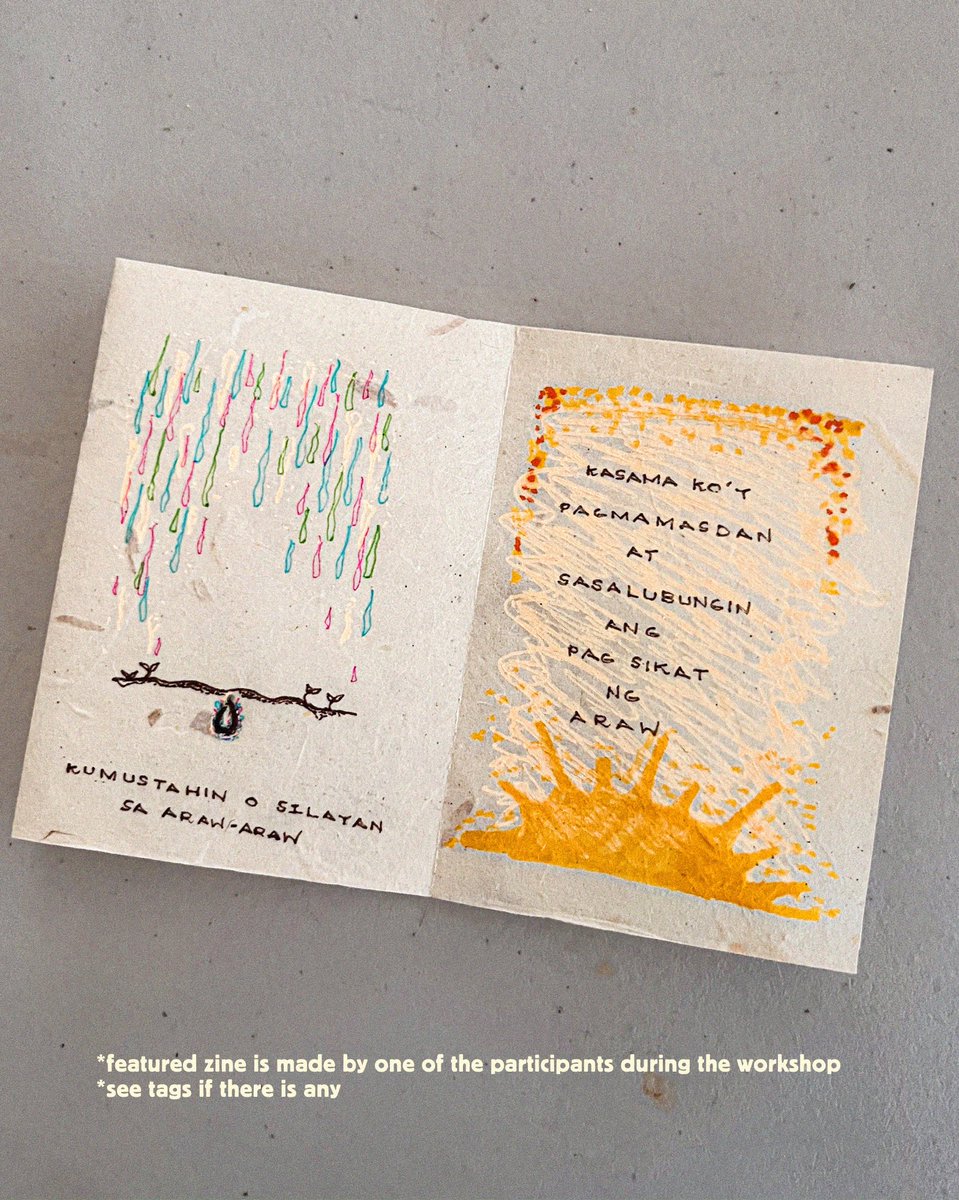 KUMUSTAHIN O SILAYAN
SA ARAW-ARAW
KASAMA KO'Y
PAGMAMASDAN
AT
SASALUBUNGIN
ANG
PAG SIKAT
NG
ARAW
*featured zine is made by one of the participants during the workshop
*see tags if there is any